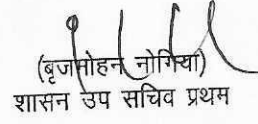 (बृजमोहन नोगिया)
शासन उप सचिव प्रथम